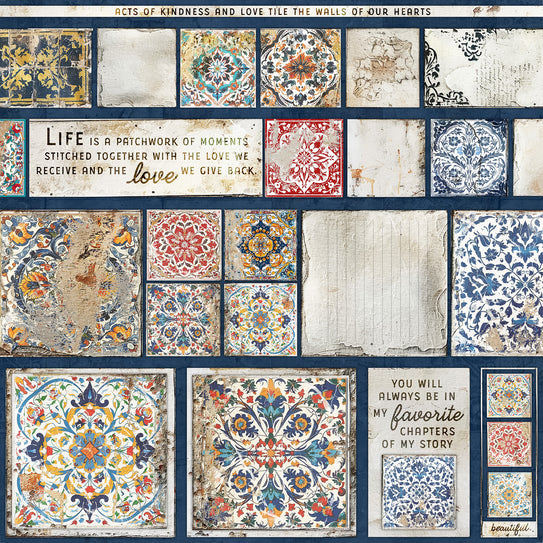 ACTS OF KINDNESS AND LOVE TILE THE WALLS OF OUR HEARTS
LIFE IS A PATCHWORK OF MOMENTS
STITCHED TOGETHER WITH THE LOVE WE
RECEIVE AND THE love WE GIVE BACK.
YOU WILL
ALWAYS BE IN
MY favorite
CHAPTERS
OF MY STORY
beautiful